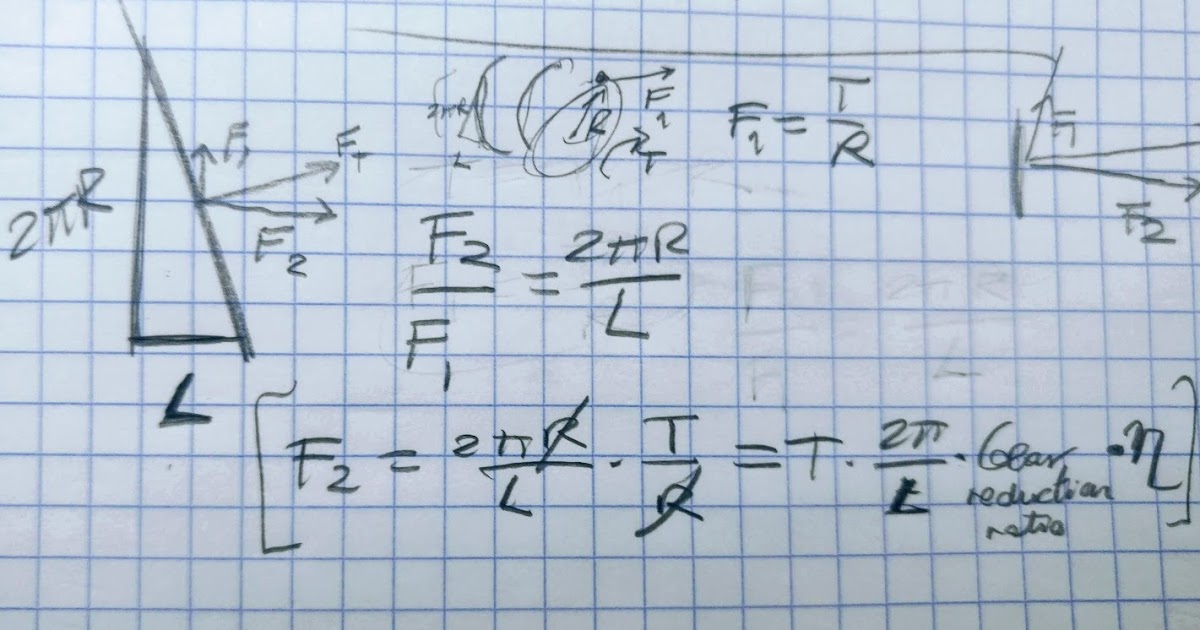 2πR
F₁
F_T
F₂
L
2πR
L
R
F₁
T
F₁ = T/R
F₁
F₂
F₂/F₁ = 2πR/L
[F₂ = 2πR/L · T/R = T · 2π/L · Gear reduction ratio · η]